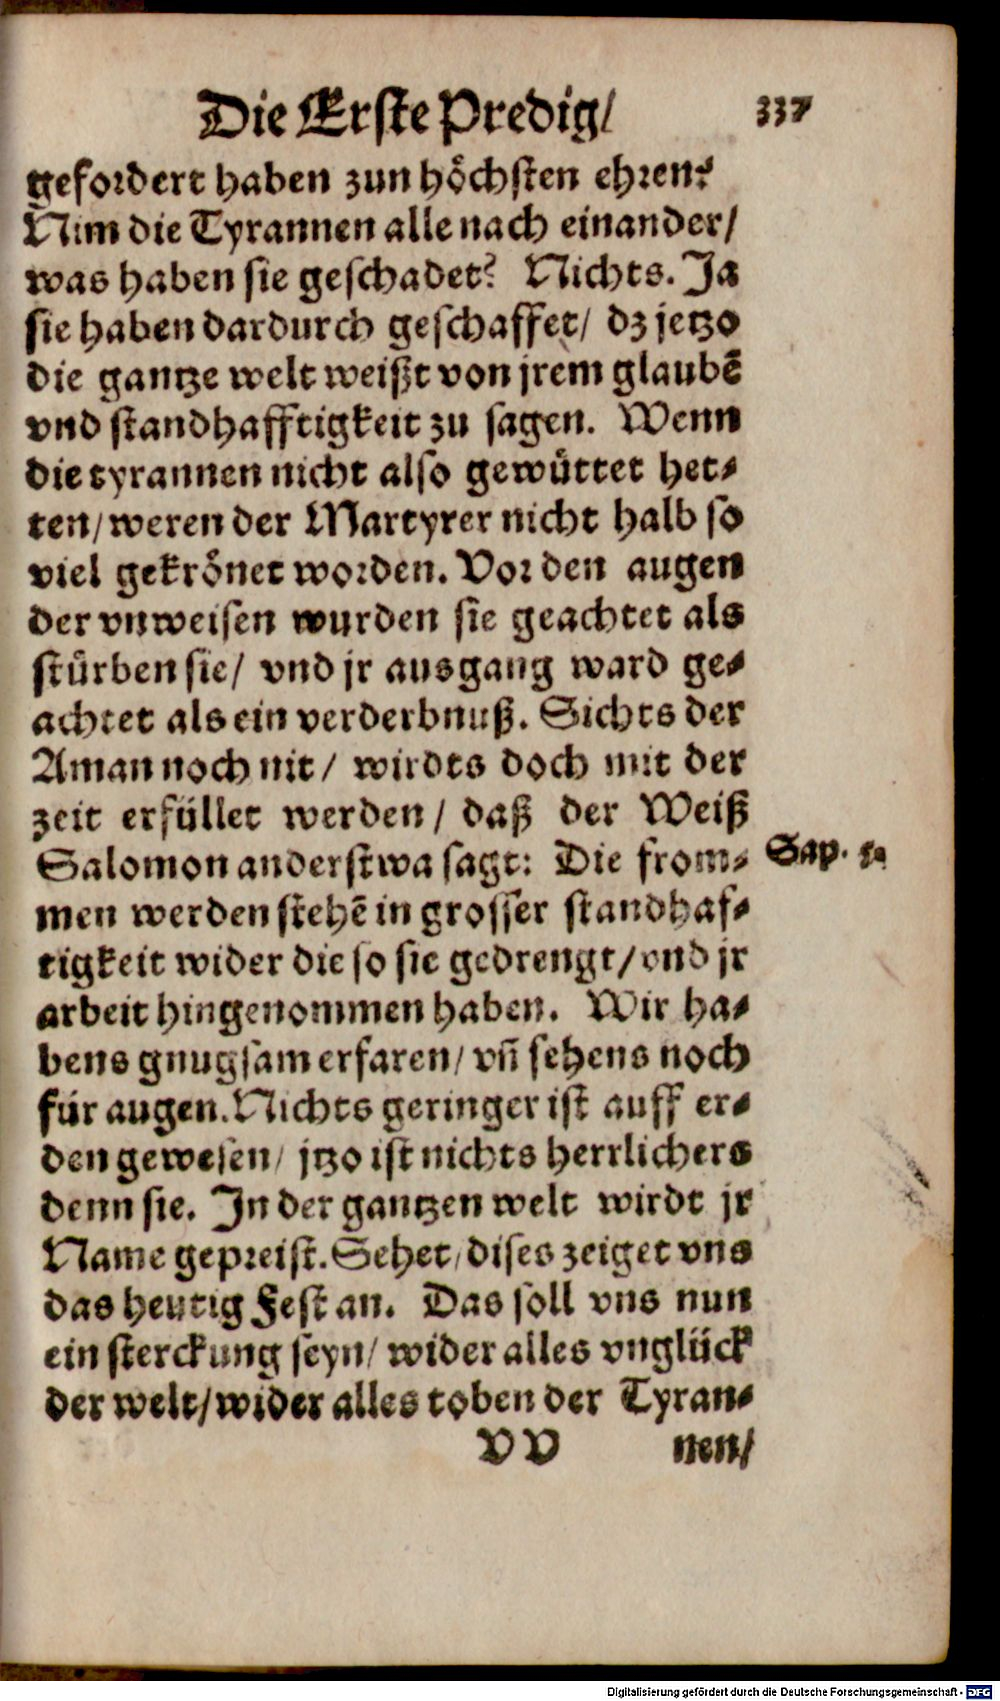 Die Erste Predig/ 337
gefordert haben zun höchsten ehren?
Nim die Tyrannen alle nach einander/
was haben sie geschadet? Nichts. Ja
sie haben dardurch geschaffet/ dz jetzo
die gantze welt weißt von jrem glaubẽ
vnd standhafftigkeit zu sagen. Wenn
die tyrannen nicht also gewüttet het-
ten/ weren der Martyrer nicht halb so
viel gekrönet worden. Vor den augen
der vnweisen wurden sie geachtet als
stürben sie/ vnd jr ausgang ward ge-
achtet als ein verderbnuß. Sichts der
Aman noch nit/ wirdts doch mit der
zeit erfüllet werden/ daß der Weiß
Salomon anderstwa sagt: Die from- Sap. 5.
men werden stehẽ in grosser standhaf-
tigkeit wider die so sie gedrengt/ vnd jr
arbeit hingenommen haben. Wir ha-
bens gnugsam erfaren/ vñ sehens noch
für augen. Nichts geringer ist auff er-
den gewesen/ jtzo ist nichts herrlichers
denn sie. In der gantzen welt wirdt jr
Name gepreist. Sehet/ dises zeiget vns
das heutig Fest an. Das soll vns nun
ein sterckung seyn/ wider alles vnglück
der welt/ wider alles toben der Tyran-
VV nen/
Digitalisierung gefördert durch die Deutsche Forschungsgemeinschaft - DFG